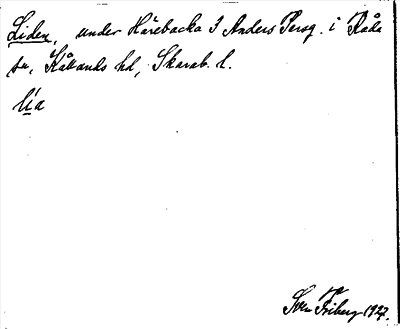 Liden, under Härebacka 3 Anders Persg. i Råda
sn, Kållands hd, Skarab. l.
lía
Sven Friberg 1927.